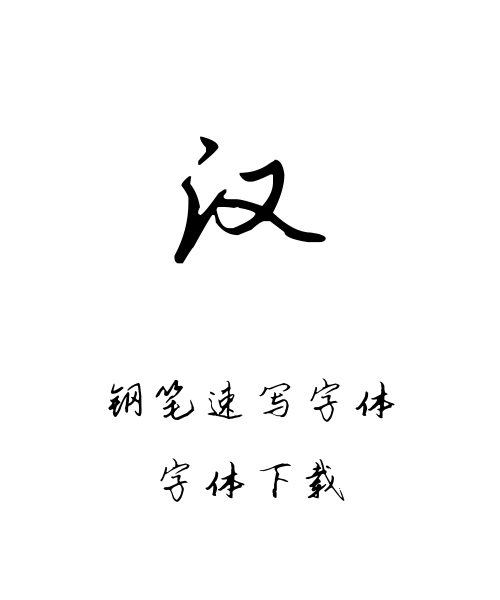 汉
钢笔速写字体
字体下载